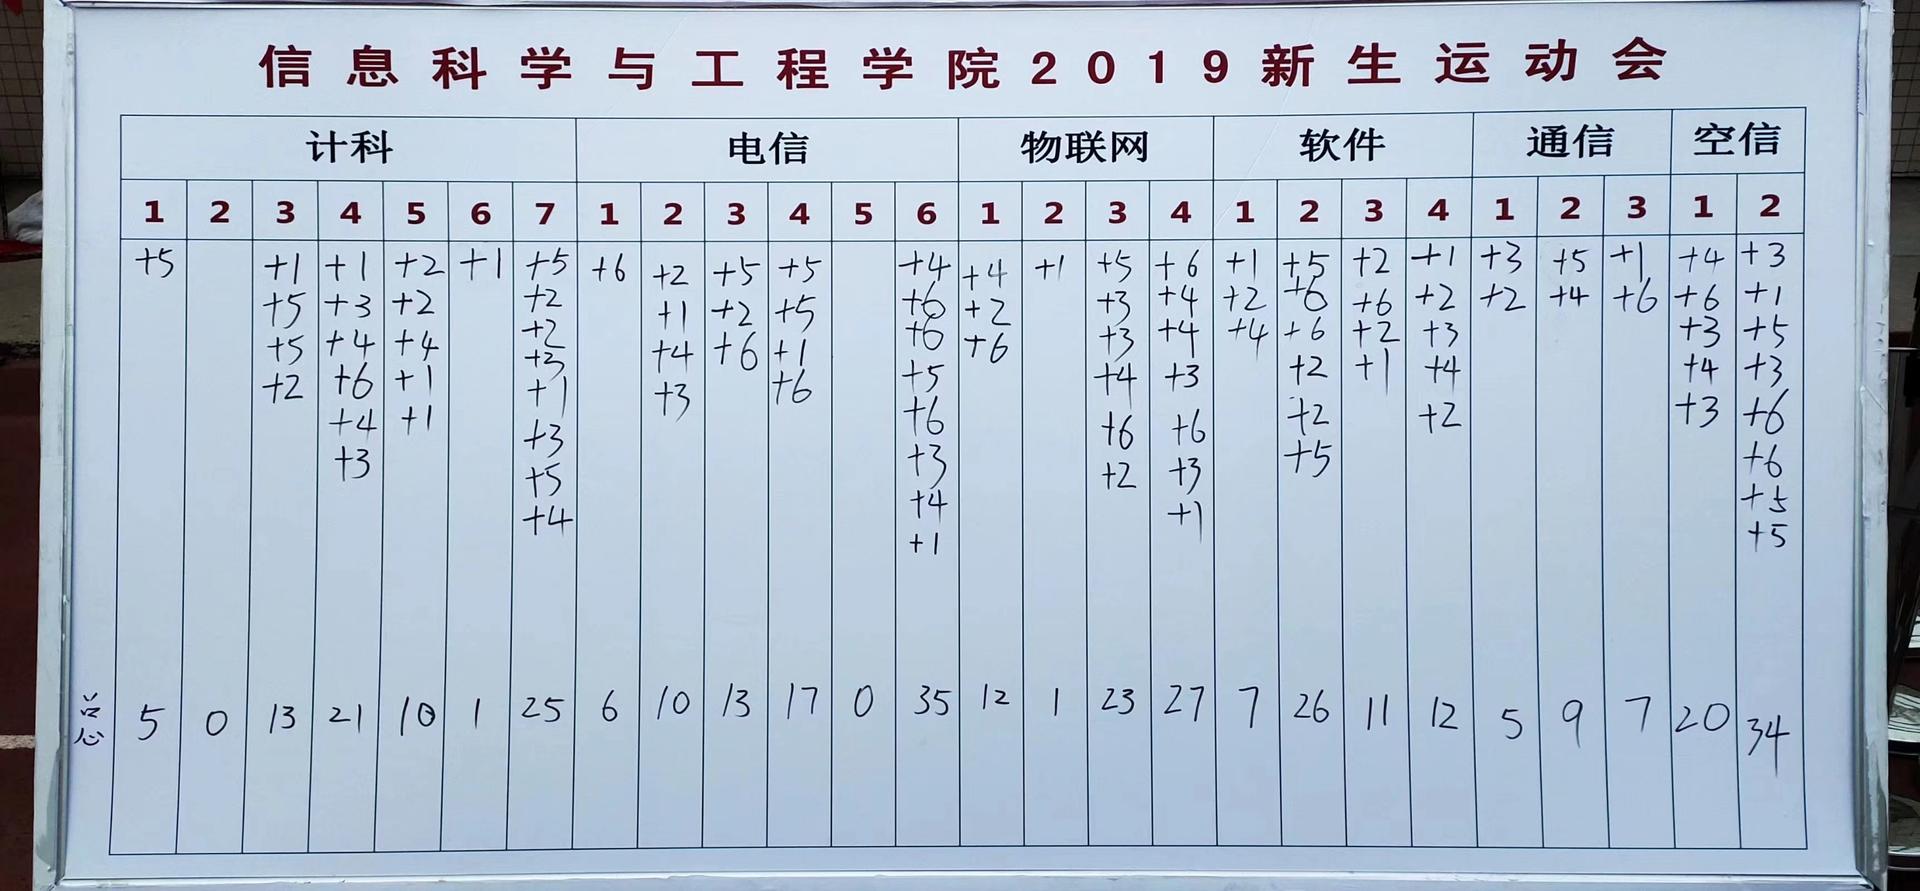 信息科学与工程学院2019新生运动会
计科 电信 物联网 软件 通信 空信
1 2 3 4 5 6 7 1 2 3 4 5 6 1 2 3 4 1 2 3 4 1 2 3 1 2
+5 +1 +1 +2 +1 +5 +6 +2 +5 +5 +4 +4 +1 +5 +6 +1 +5 +2 +1 +3 +5 +1 +4 +3
+5 +3 +2 +2 +1 +2 +5 +6 +2 +3 +4 +2 +6 +6 +2 +2 +4 +6 +6 +1
+5 +4 +4 +2 +4 +6 +1 +6 +6 +3 +4 +4 +6 +2 +3 +3 +5
+2 +6 +1 +3 +3 +6 +5 +4 +3 +2 +1 +4 +4 +3
+4 +1 +1 +6 +6 +6 +2 +2 +3 +6
+3 +3 +3 +2 +3 +5 +6
+5 +4 +1 +5
+4 +1 +5
总 5 0 13 21 10 1 25 6 10 13 17 0 35 12 1 23 27 7 26 11 12 5 9 7 20 34